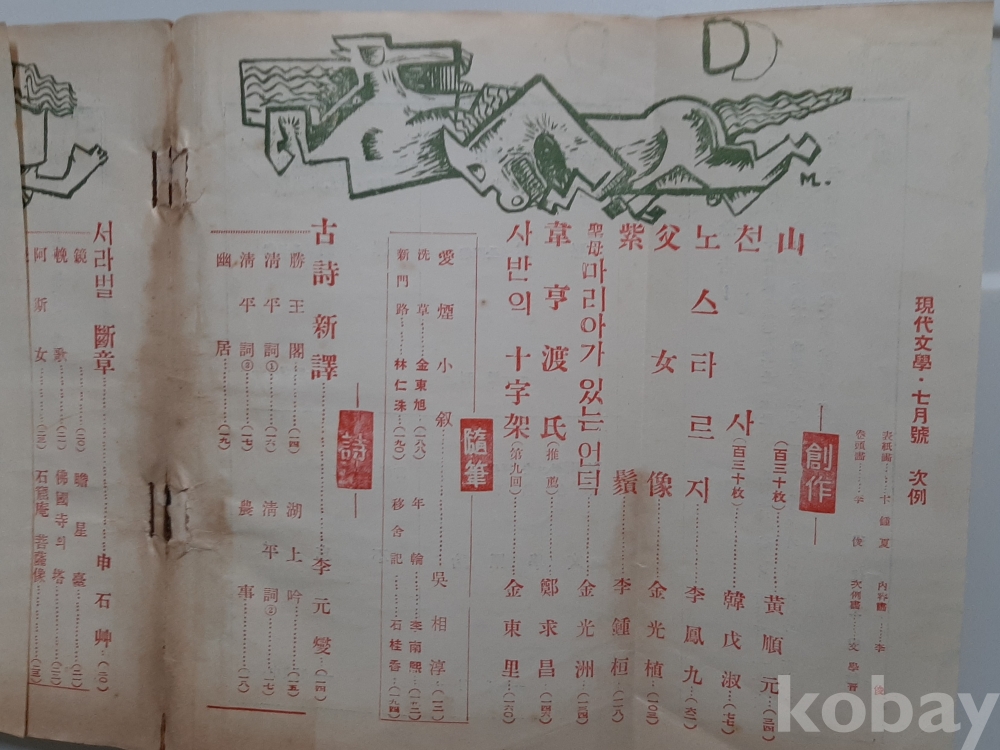 現代文學・七月號 次例
表紙畫
卷頭畫
內容畫
次例畫
創作
山 (百三十枚) 黃順元 (三四)
천사 (百三十枚) 韓戊淑 (七七)
노스타르지 李鳳九 (六二)
父女像 金光植 (一〇三)
紫鬚 李鍾桓 (一一八)
聖母마리아가있는언덕 金光洲 (一三四)
韋亨渡氏 (推薦) 鄭求昌 (一四六)
사반의十字架 (第九回) 金東里 (一六〇)
隨筆
愛煙小叙 吳相淳 (一三)
洗草 金東旭 (一八八)
年輪 李南熙
新門路 林仁洙 (一九〇)
移舍記 石桂香 (一九四)
詩
古詩新譯 李元燮 (一四)
勝王閣 (一四)
湖上吟 (一五)
淸平詞① (一六)
淸平詞② (一七)
淸平詞③ (一七)
農事 (一八)
幽居 (一九)
서라벌斷章 申石艸 (二〇)
鏡 (二〇)
瞻星臺 (二一)
輓歌 (二一)
佛國寺의塔 (二二)
阿斯女 (二三)
石窟庵菩薩像 (二三)
M.
kobay